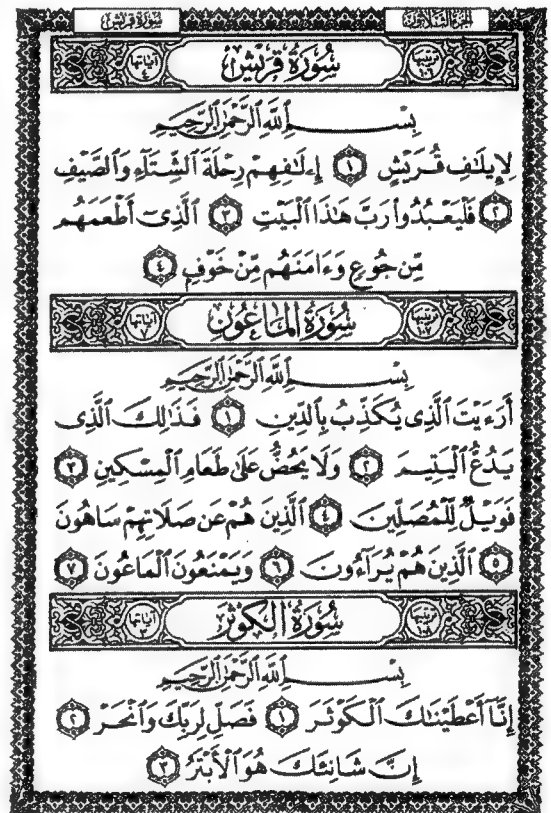 سُورَةُ قُرَيْشٍ الجُزْءُ الثَّلَاثُونَ
ترتيبها ١٠٦ سُورَةُ قُرَيْشٍ آياتها ٤
بِسْمِ ٱللَّهِ ٱلرَّحْمَٰنِ ٱلرَّحِيمِ
لِإِيلَٰفِ قُرَيْشٍ ١ إِۦلَٰفِهِمْ رِحْلَةَ ٱلشِّتَآءِ وَٱلصَّيْفِ
٢ فَلْيَعْبُدُوا۟ رَبَّ هَٰذَا ٱلْبَيْتِ ٣ ٱلَّذِىٓ أَطْعَمَهُم
مِّن جُوعٍ وَءَامَنَهُم مِّنْ خَوْفٍۭ ٤
ترتيبها ١٠٧ سُورَةُ المَاعُونِ آياتها ٧
بِسْمِ ٱللَّهِ ٱلرَّحْمَٰنِ ٱلرَّحِيمِ
أَرَءَيْتَ ٱلَّذِى يُكَذِّبُ بِٱلدِّينِ ١ فَذَٰلِكَ ٱلَّذِى
يَدُعُّ ٱلْيَتِيمَ ٢ وَلَا يَحُضُّ عَلَىٰ طَعَامِ ٱلْمِسْكِينِ ٣
فَوَيْلٌ لِّلْمُصَلِّينَ ٤ ٱلَّذِينَ هُمْ عَن صَلَاتِهِمْ سَاهُونَ
٥ ٱلَّذِينَ هُمْ يُرَآءُونَ ٦ وَيَمْنَعُونَ ٱلْمَاعُونَ ٧
ترتيبها ١٠٨ سُورَةُ الكَوْثَرِ آياتها ٣
بِسْمِ ٱللَّهِ ٱلرَّحْمَٰنِ ٱلرَّحِيمِ
إِنَّآ أَعْطَيْنَٰكَ ٱلْكَوْثَرَ ١ فَصَلِّ لِرَبِّكَ وَٱنْحَرْ ٢
إِنَّ شَانِئَكَ هُوَ ٱلْأَبْتَرُ ٣